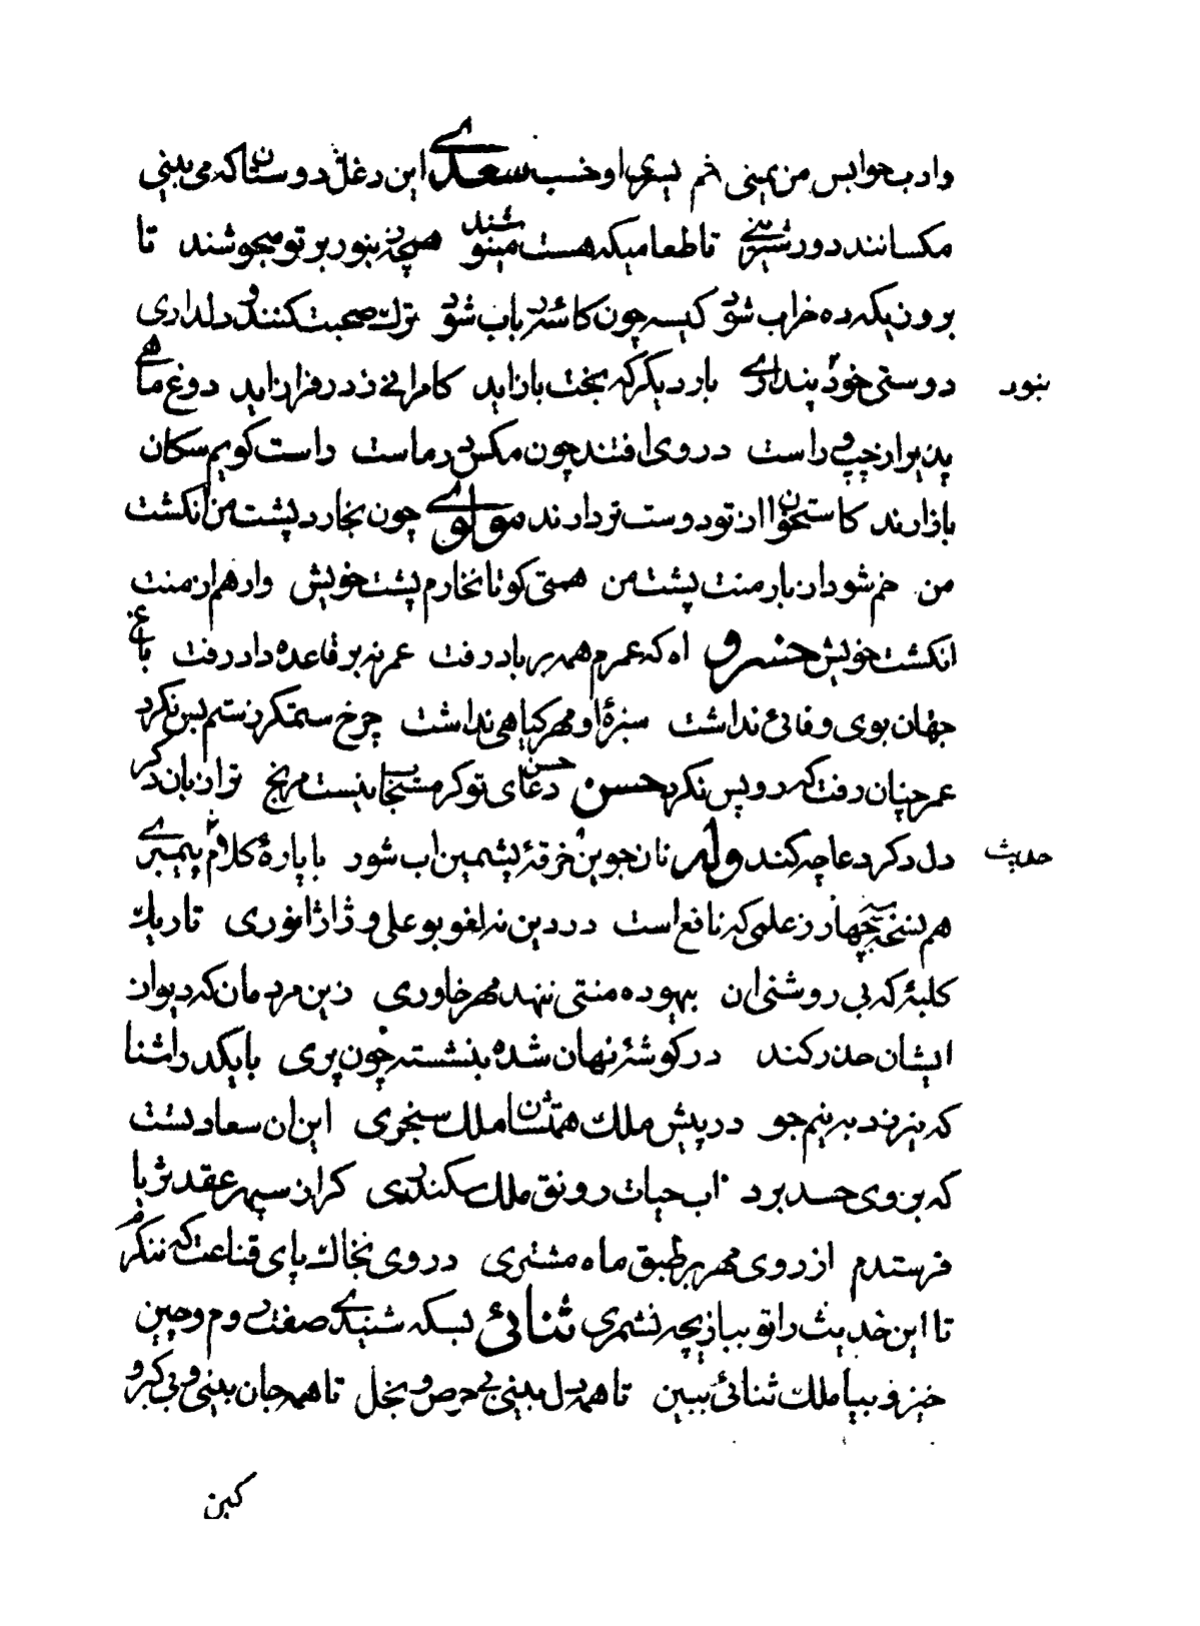 وادب حوابس من بمینی خم بسری اوخسب سعدی این دغل دوستان که می بینی
مکسانند دور شیرینی تا طعامیکه هست مینوشند همچو زنبور بر تو میجوشند تا
برونیکه ده خراب شود کیسه چون کاسهٔ رباب شود ترک صحبت کنند و دلداری
دوستی خود پنداری بار دیگر که بخت باز اید کامرانی ز در فراز اید دوغ ماهی
زنبور
پدیر از چپ و راست در وی افتند چون مکس در ماست راست کویم سکان
بازارند کاستخوان از تو دوست تر دارند مولوی چون بخارد پشت من انکشت
من خم شود از بار منت پشت من همتی کو تا نخارم پشت خویش وارهم از منت
انکشت خویش خسرو اه که عمرم همه بر باد رفت عمر نه بر قاعده داد رفت باغ
جهان بوی وفائی نداشت سبزهٔ او مهر کیاهی نداشت چرخ ستمکر ز ستم بس نکرد
عمر چنان رفت که رو پس نکرد حسن حسن دعای تو کر مستجاب نیست مرنج ترا زبان دکر
دل دکر دعا چه کند وله نان جوین و خرقهٔ پشمین اب شور با پارهٔ کلام و حدیث پیمبری
حدیث
هم نسخه سه چهار ز علمی که نافع است در دین نه لغو بوعلی و ژاژ انوری تاریک
کلبهٔ که پی روشنی ان بیهوده منتی ننهد مهر خاوری زین مردمان که دیو از
ایشان حذر کند در کوشهٔ نهان شده بنشسته چون پری با یکدو اشنا
که نیرزد به نیم جو در پیش ملک همتشان ملک سنجری این ان سعادتست
که بر وی حسد برد اب حیات و رونق ملک سکندری کر ان سپهر عقد ثریا
فرستدم از روی مهر بر طبق ماه مشتری در روی نخاک پای قناعت که ننکرم
تا این حدیث را تو ببازیچه نشمری ثنائی بسکه شنیدی صفت روم و چین
خیز و بیا ملک ثنائی ببین تا همه دل بینی بی حرص و بخل تا همه جان بینی و بی کبر و
کین